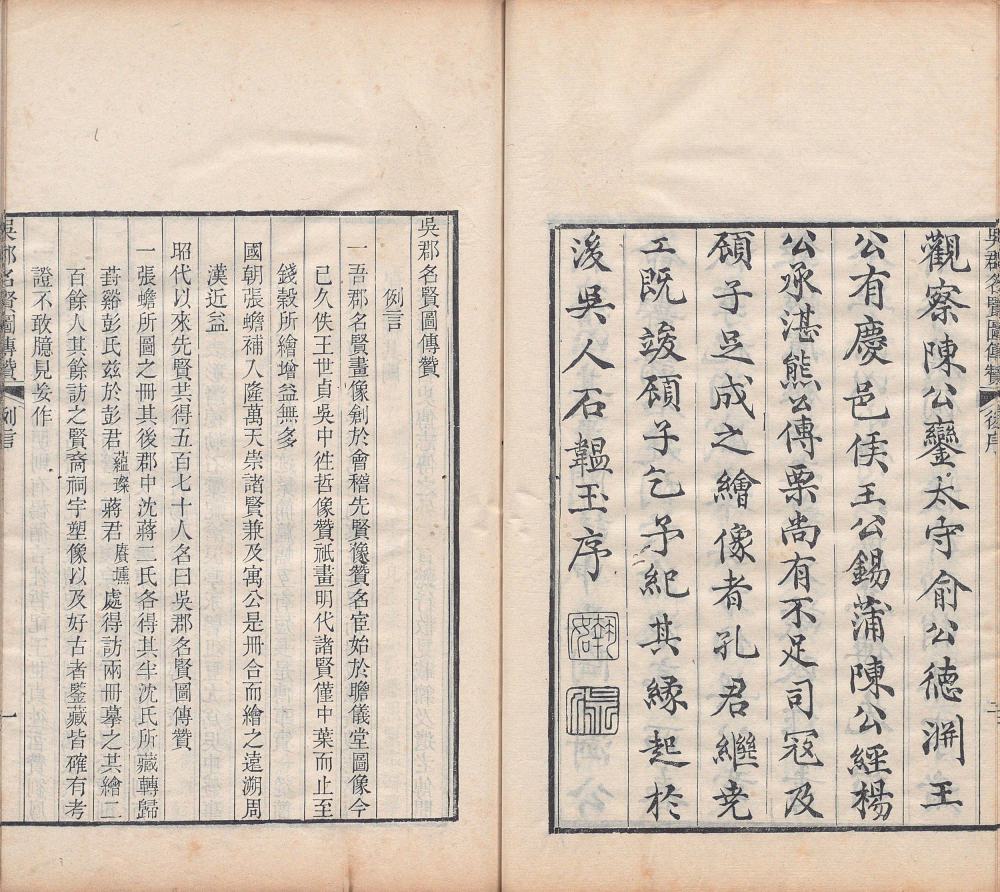 吳郡名賢圖傳贊 後序 二
觀察陳公鑾太守俞公德淵王
公有慶邑侯王公錫蒲陳公經楊
公承湛熊公傳栗尚有不足司寇及
頋子足成之繪像者孔君繼堯
工既竣頋子乞予紀其緣起於
後吳人石韞玉序
吳郡名賢圖傳贊
例言
一吾郡名賢畫像創於會稽先賢像贊名宦始於瞻儀堂圖像今
已久佚王世貞吳中徃哲像贊祇畫明代諸賢僅中葉而止至
錢穀所繪增益無多
國朝張蟾補入隆萬天崇諸賢兼及寓公是冊合而繪之遠溯周
漢近益
昭代以來先賢共得五百七十人名曰吳郡名賢圖傳贊
一張蟾所圖之冊其後郡中沈蔣二氏各得其半沈氏所藏轉歸
葑谿彭氏兹於彭君蘊璨蔣君賡壎處得訪兩冊摹之其繪二
百餘人其餘訪之賢裔祠宇塑像以及好古者鑒藏皆確有考
證不敢臆見妄作
吳郡名賢圖傳贊 例言 一